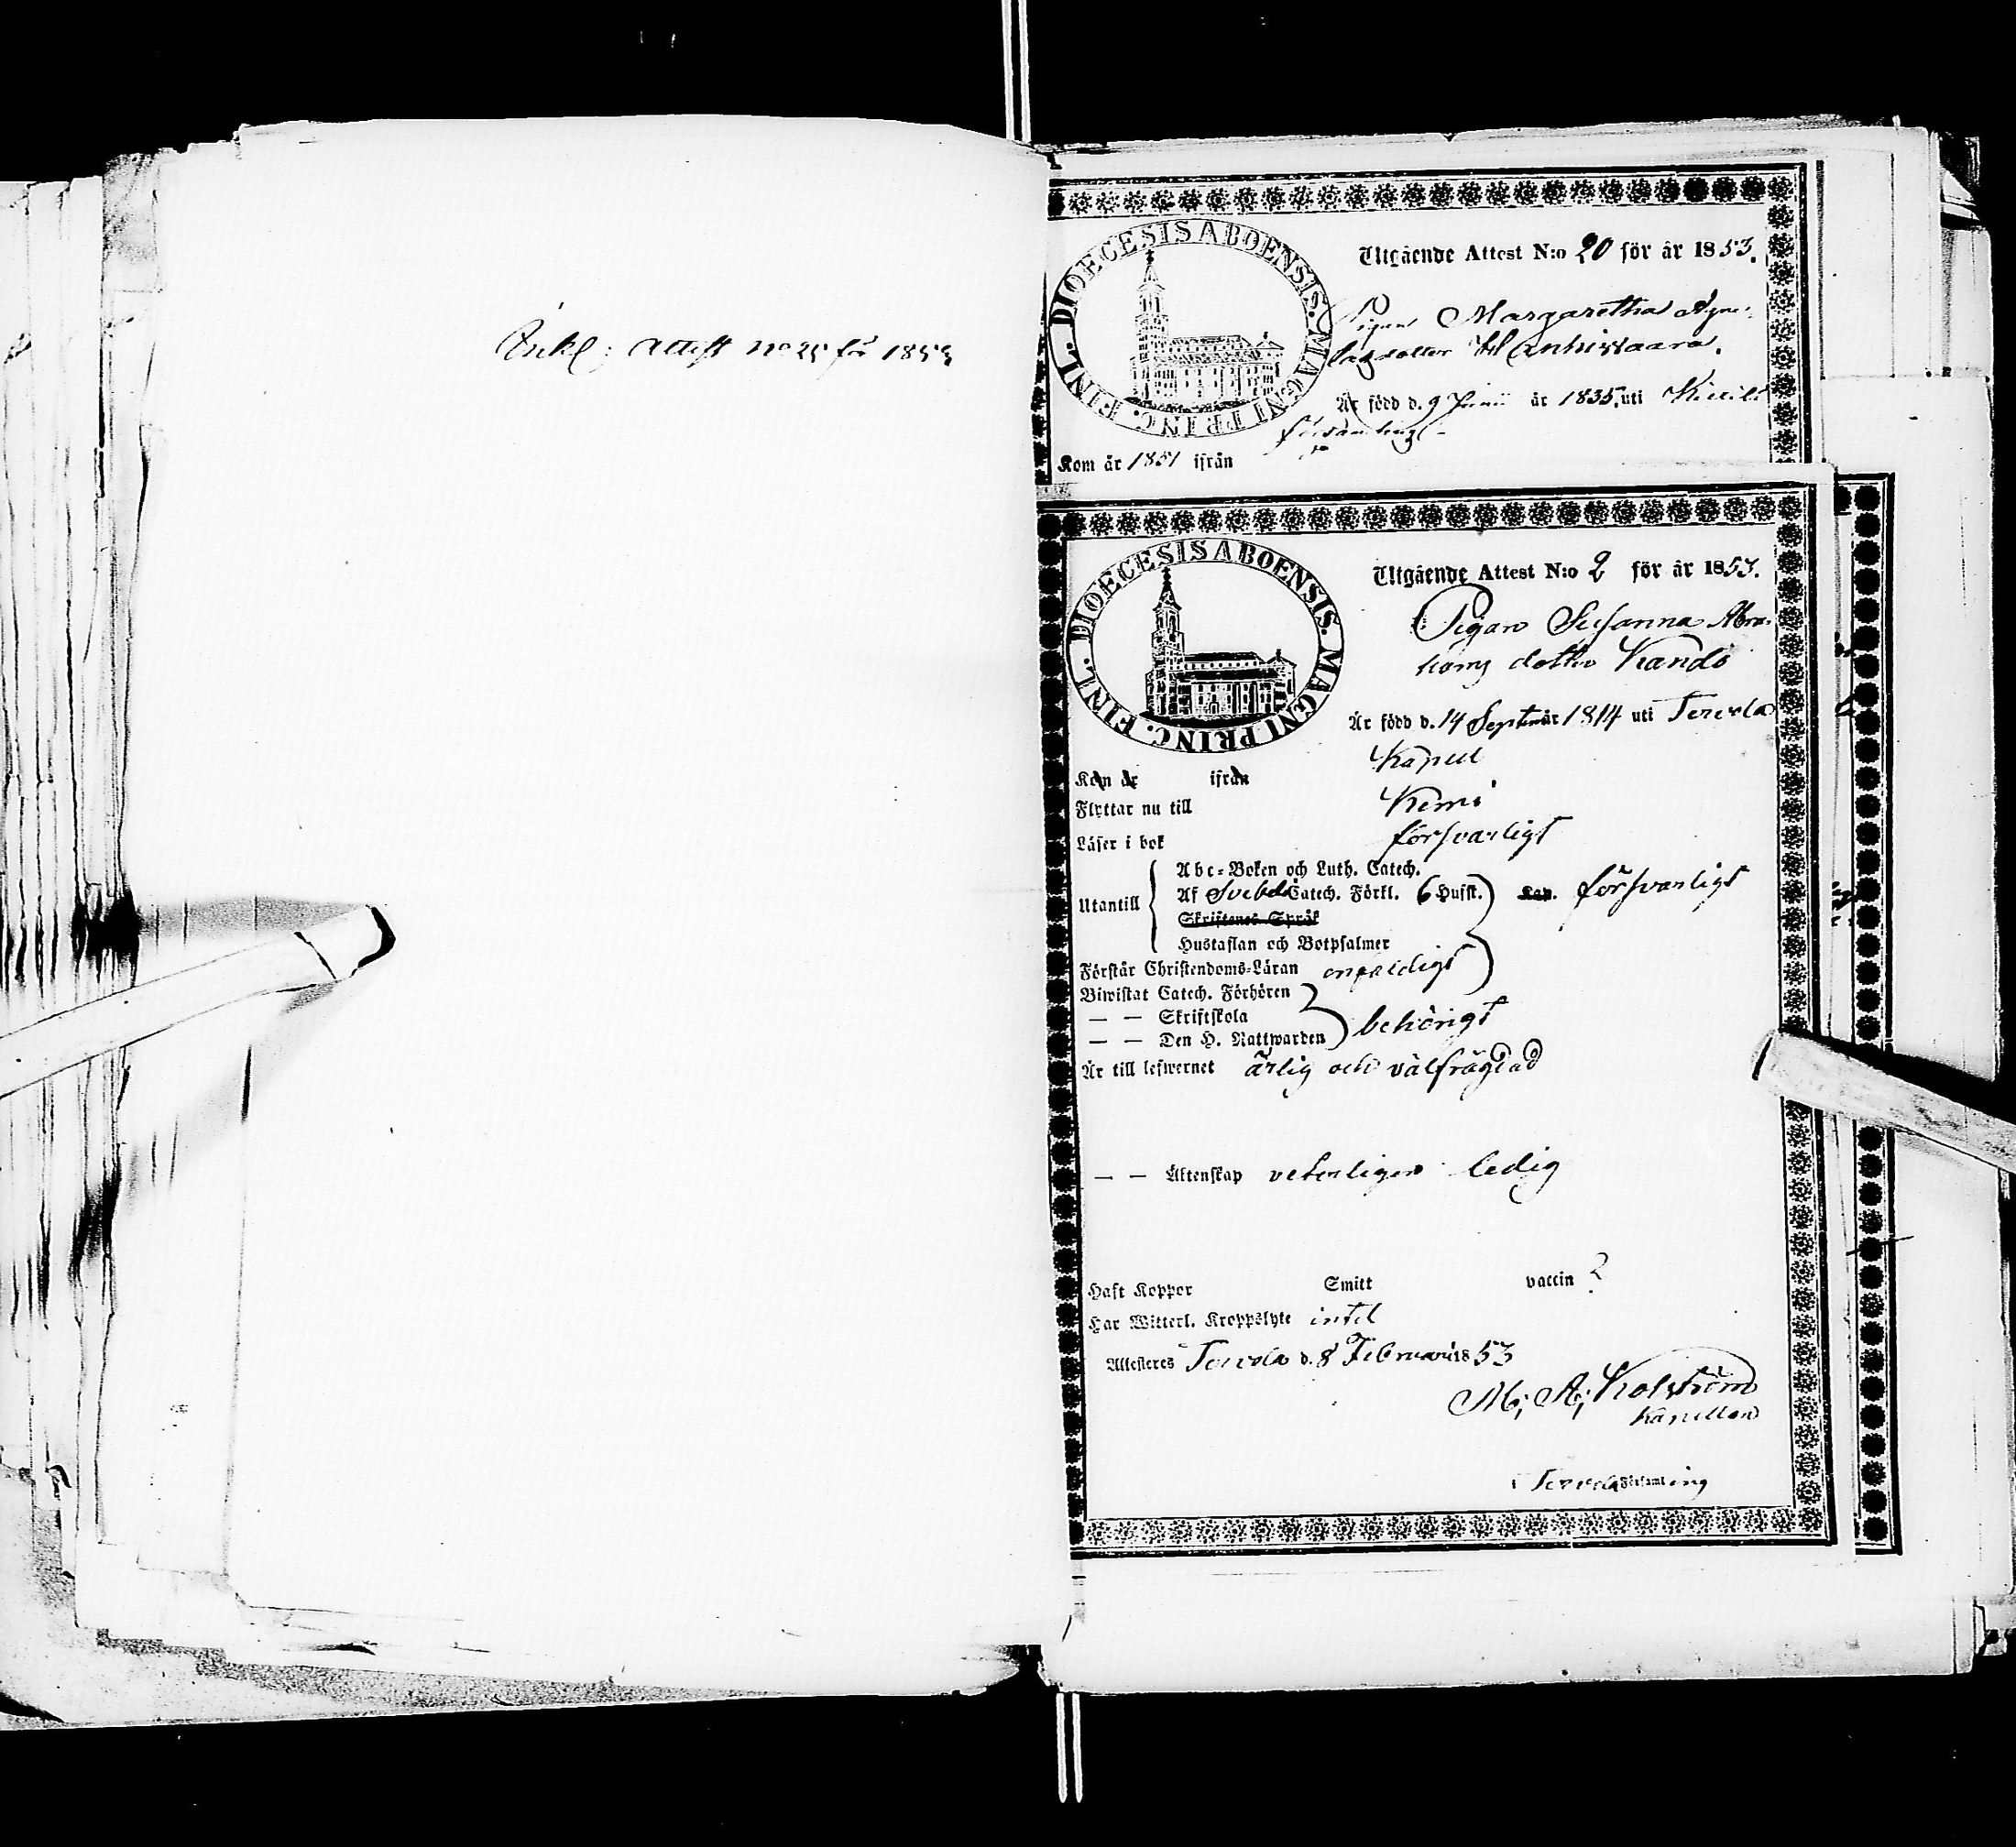 Inkl: Attest No 25 för 1853
DIOECESIS ABOENSIS. MAGNI PRINC. FINL.
Utgående Attest N:o 20 för år 1853.
Pigan Margaretha
dotter
Är född d. 9 Junii år 1835, uti
församling
Kom år 1851 ifrån
DIOECESIS ABOENSIS. MAGNI PRINC. FINL.
Utgående Attest N:o 2 för år 1853.
Pigan Susanna Abra-
hams dotter Kando
Är född d. 14 Septembr år 1814 uti Tervola
Kapell
Kom år ifrån
Flyttar nu till Kemi
Läser i bok försvarligt
Utantill
Abc-Boken och Luth. Catech.
Af Svebel. Catech. Förkl. 6 Hufst. Cap. försvarligt
Skriftenes Språk
Hustaflan och Botpsalmer
Förstår Christendoms-Läran enfaldigt
Biwistat Catech. Förhören
— — Skriftskola behörigt
— — Den H. Nattwarden
Är till lefwernet ärlig och välfrägdad
— — Äktenskap veterligen ledig
Haft Koppor Smitt vaccin ?
Har Witterl. Kroppslyte intet
Attesteres Tervola d. 8 Februarii 1853
M; A; Kolström
Kapellan
i Tervola Församling